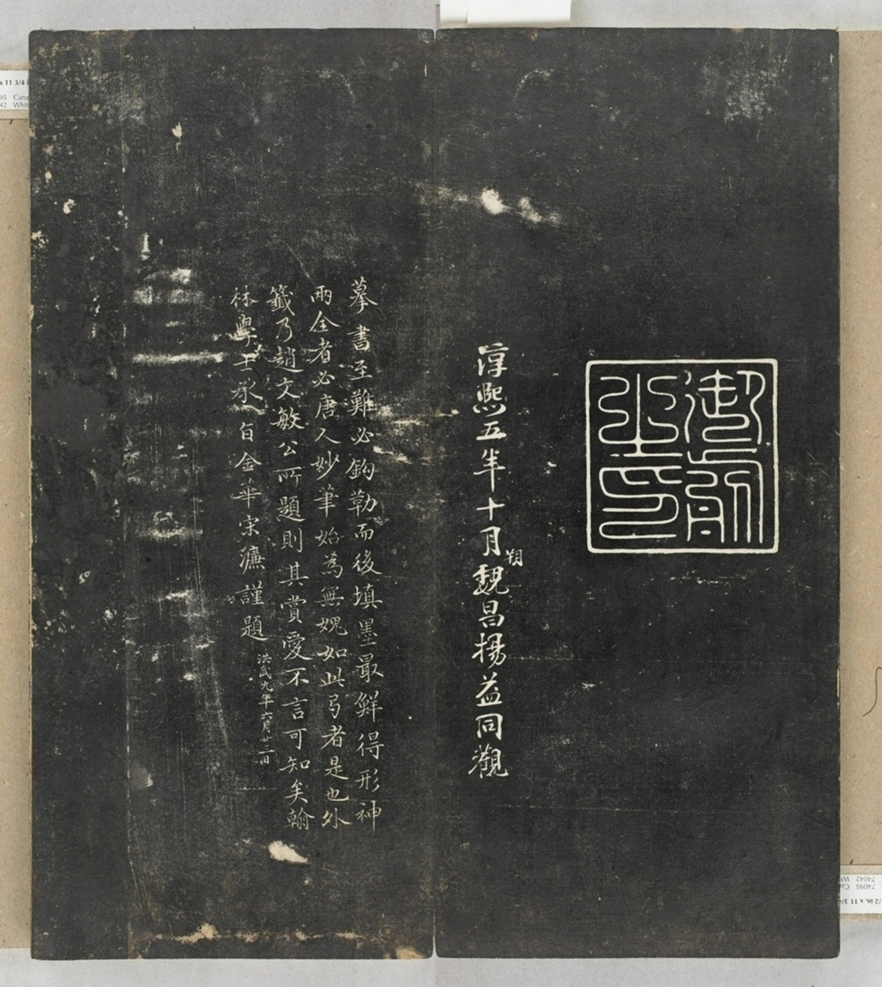 御前
之印
淳熙五年十月朔魏昌楊益同觀
摹書至難必鈎勒而後填墨最鮮得形神
兩全者必唐人妙筆始為無媿如此弓者是也外
籤乃趙文敏公所題則其賞愛不言可知矣翰
林學士承旨金華宋濂謹題
洪武九年六月十二日